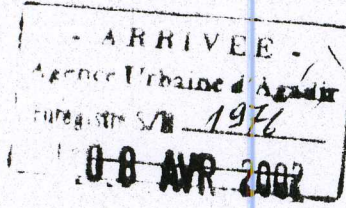 - ARRIVEE -
Agence Urbaine d'Agadir
Enregistré S/N 1976
08 AVR 2002